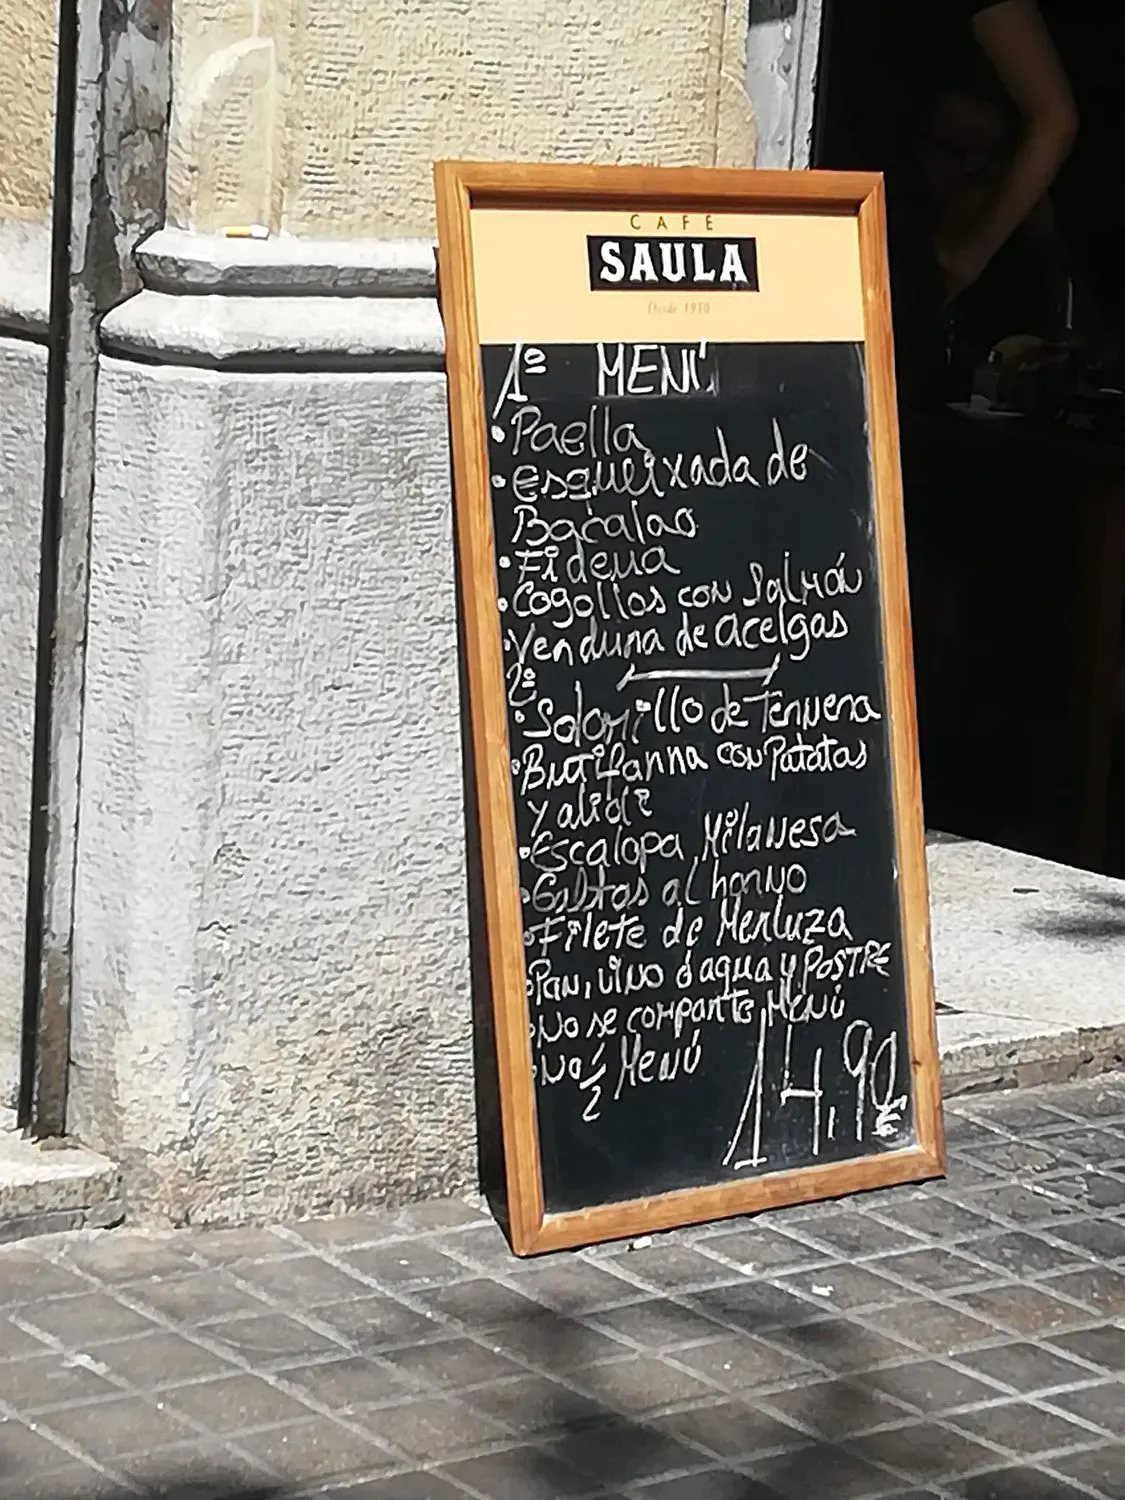 CAFÉ
SAULA
Desde 1950
1º MENÚ
• Paella
• esqueixada de
Bacalao
• Fideua
• Cogollos con Salmón
• Verdura de acelgas
2º
• Solomillo de Ternera
• Butifarra con Patatas
y alioli
• Escalopa Milanesa
• Galtas al horno
• Filete de Merluza
• Pan, vino ó agua y POSTRE
• No se comparte Menú
• No ½ Menú
14,90€